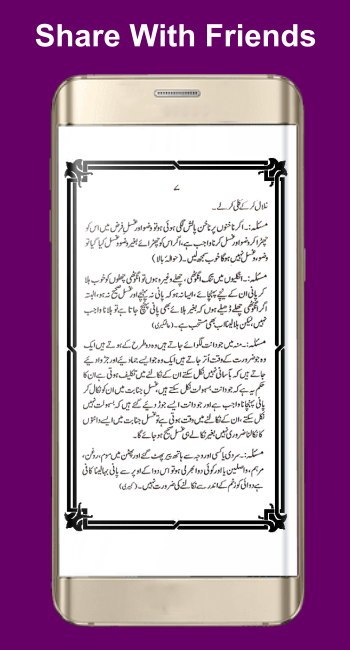 Share With Friends
۷
خلال کر کے کلی کر لے۔
مسئلہ:۔ اگر ناخنوں پر ناخن پالش لگی ہوئی ہو تو وضو اور غسل فرض میں اس کو
چھڑا کر وضو اور غسل کرنا واجب ہے، اگر اس کو چھڑائے بغیر وضو و غسل کیا گیا تو
وضو، وغسل نہیں ہوگا خوب سمجھ لیں۔ (حوالہ بالا)
مسئلہ:۔ انگلیوں میں تنگ انگوٹھی، چھلے وغیرہ ہوں تو انگوٹھی چھلوں کو خوب ہلا
کر پانی ان کے نیچے پہنچائے، ایسا نہ ہو کہ پانی نہ پہنچے اور غسل صحیح نہ ہو، البتہ
اگر انگوٹھی چھلے ڈھیلے ہوں کہ بغیر ہلائے بھی پانی پہنچ جاتا ہے تو ہلانا واجب
نہیں، لیکن ہلا لینا اب بھی مستحب ہے۔ (عالمگیری)
مسئلہ:۔ منہ میں جو دانت لگوائے جاتے ہیں وہ دو طرح کے ہوتے ہیں ایک
وہ جو ضرورت کے وقت اُتر جاتے ہیں ایک وہ جو ایسے جما دیئے اور جڑوا دیئے
جاتے ہیں کہ بآسانی نہیں نکل سکتے ان کے نکالنے میں تکلیف ہوتی ہے ان کا
حکم یہ ہے کہ جو دانت بسہولت نکل سکتے ہیں غسل جنابت میں ان کو نکال کر
پانی پہنچانا واجب ہے اور جو دانت ایسے جوڑ دیئے گئے ہیں کہ بسہولت نہیں
نکل سکتے، ان کے نکالنے میں دقت ہوتی ہے تو غسل جنابت میں ایسے دانتوں
کا نکالنا ضروری نہیں بغیر نکالے ہی غسل صحیح ہو جائے گا۔
مسئلہ:۔ سردی یا کسی اور وجہ سے ہاتھ پیر پھٹ گئے اور پھٹن میں موم، روغن،
مرہم، واصلین یا اور کوئی دوا بھر لی ہو تو اس دوا کے اوپر سے پانی بہا لینا کافی
ہے دوائی کو زخم کے اندر سے نکالنے کی ضرورت نہیں۔ (کبیری)